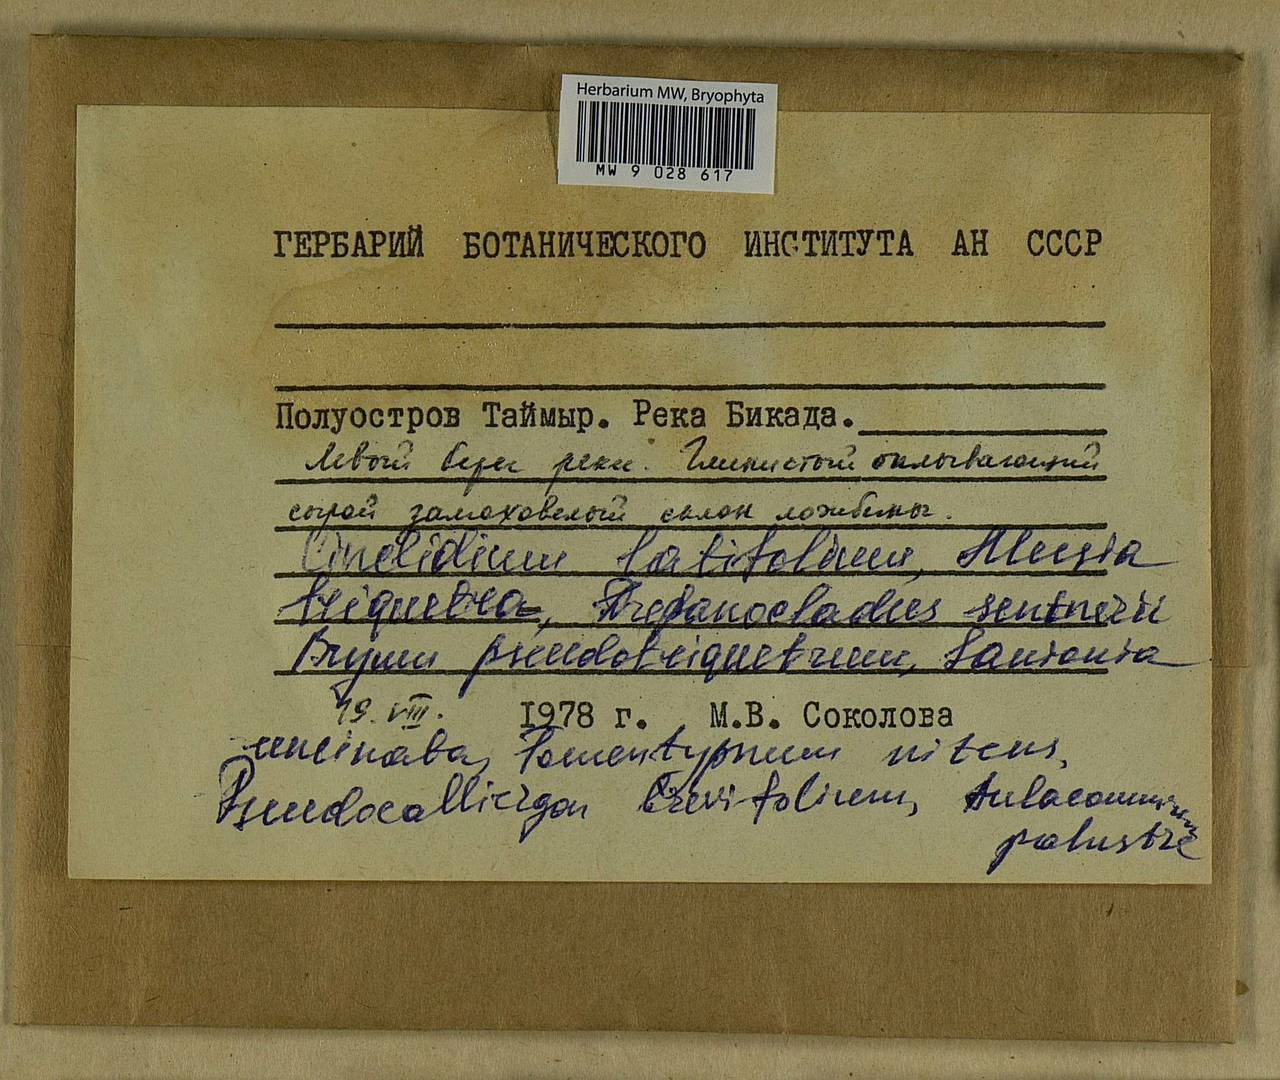 Herbarium MW, Bryophyta
MW 9 028 617
ГЕРБАРИЙ БОТАНИЧЕСКОГО ИНСТИТУТА АН СССР
Полуостров Таймыр. Река Бикада.
Левый берег реки. Глинистый оплывающий
сырой замоховелый склон ложбины.
Cinclidium latifolium, Meesia
triquetra, Drepanocladus sendtneri
Bryum pseudotriquetrum, Sanionia
19.VIII. 1978 г. М.В. Соколова
uncinata, Tomentypnum nitens,
Pseudocalliergon brevifolium, Aulacomnium
palustre